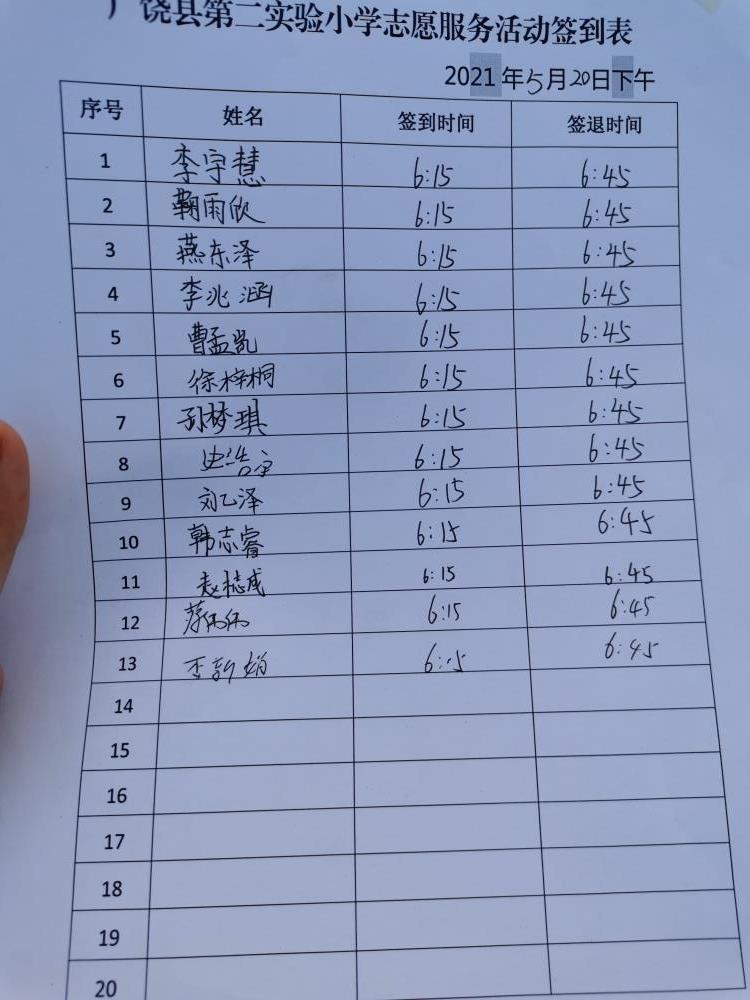 广饶县第二实验小学志愿服务活动签到表
2021年5月20日下午
序号 姓名 签到时间 签退时间
1 李宇慧 6:15 6:45
2 鞠雨欣 6:15 6:45
3 燕东泽 6:15 6:45
4 李兆涵 6:15 6:45
5 曹孟凯 6:15 6:45
6 徐梓桐 6:15 6:45
7 孙梦琪 6:15 6:45
8 史浩宇 6:15 6:45
9 刘乙泽 6:15 6:45
10 韩志睿 6:15 6:45
11 6:15 6:45
12 6:15 6:45
13 6:15 6:45
14
15
16
17
18
19
20